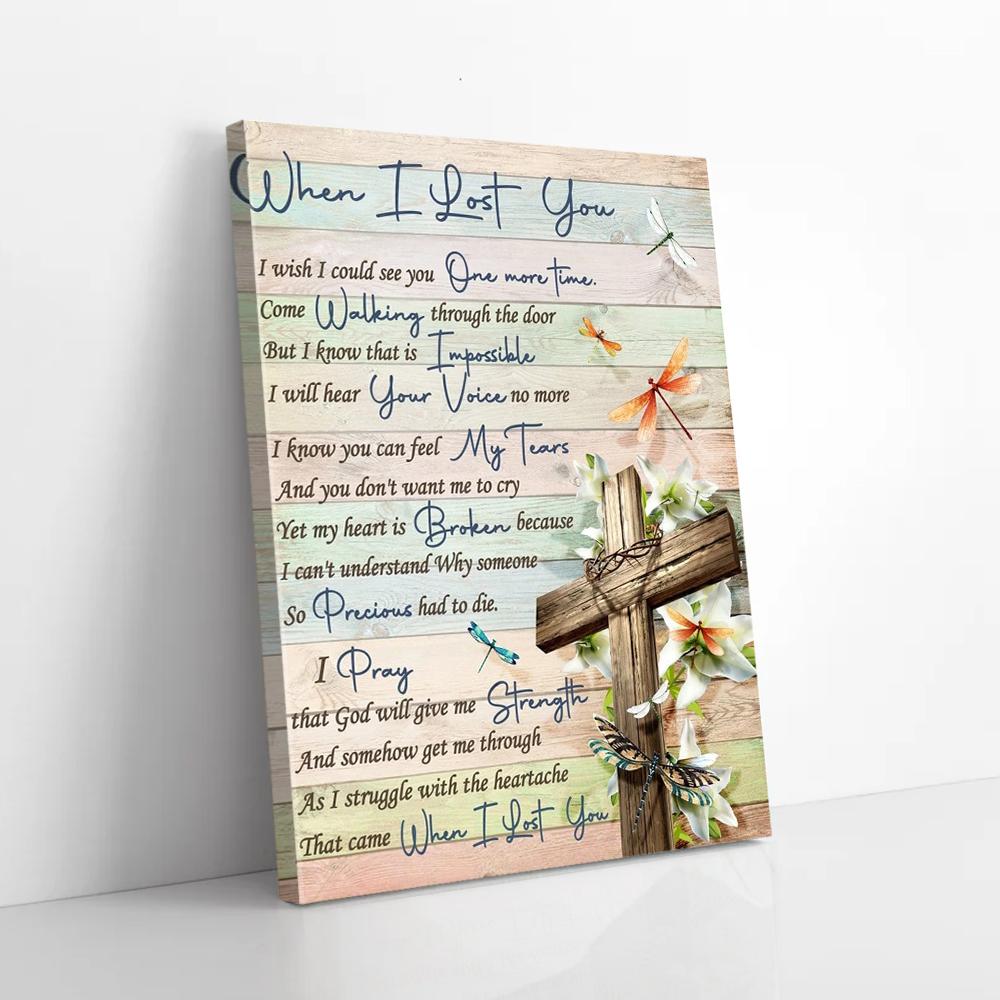 When I Lost You
I wish I could see you One more time.
Come Walking through the door
But I know that is Impossible
I will hear Your Voice no more
I know you can feel My Tears
And you don't want me to cry
Yet my heart is Broken because
I can't understand Why someone
So Precious had to die.
I Pray
that God will give me Strength
And somehow get me through
As I struggle with the heartache
That came When I Lost You